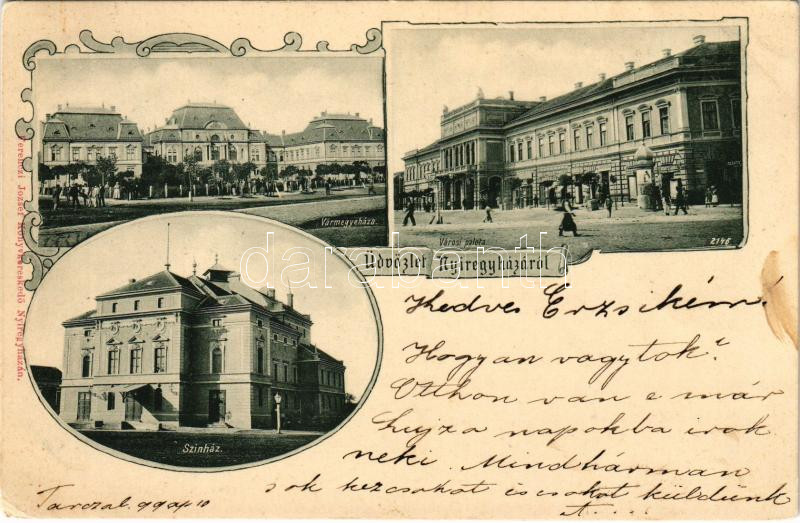 Vármegyeháza.
Városi palota.
2146
Üdvözlet Nyiregyházáról
Ferenczi József Könyvkereskedő Nyiregyházán.
Szinház.
darabanth.com
Kedves Erzsikém!
Hogyan vagytok?
Otthon van e már
Lujza a napokba irok
neki. Mindhárman
sok kézcsokot és csokot küldünk
Tarczal. 99